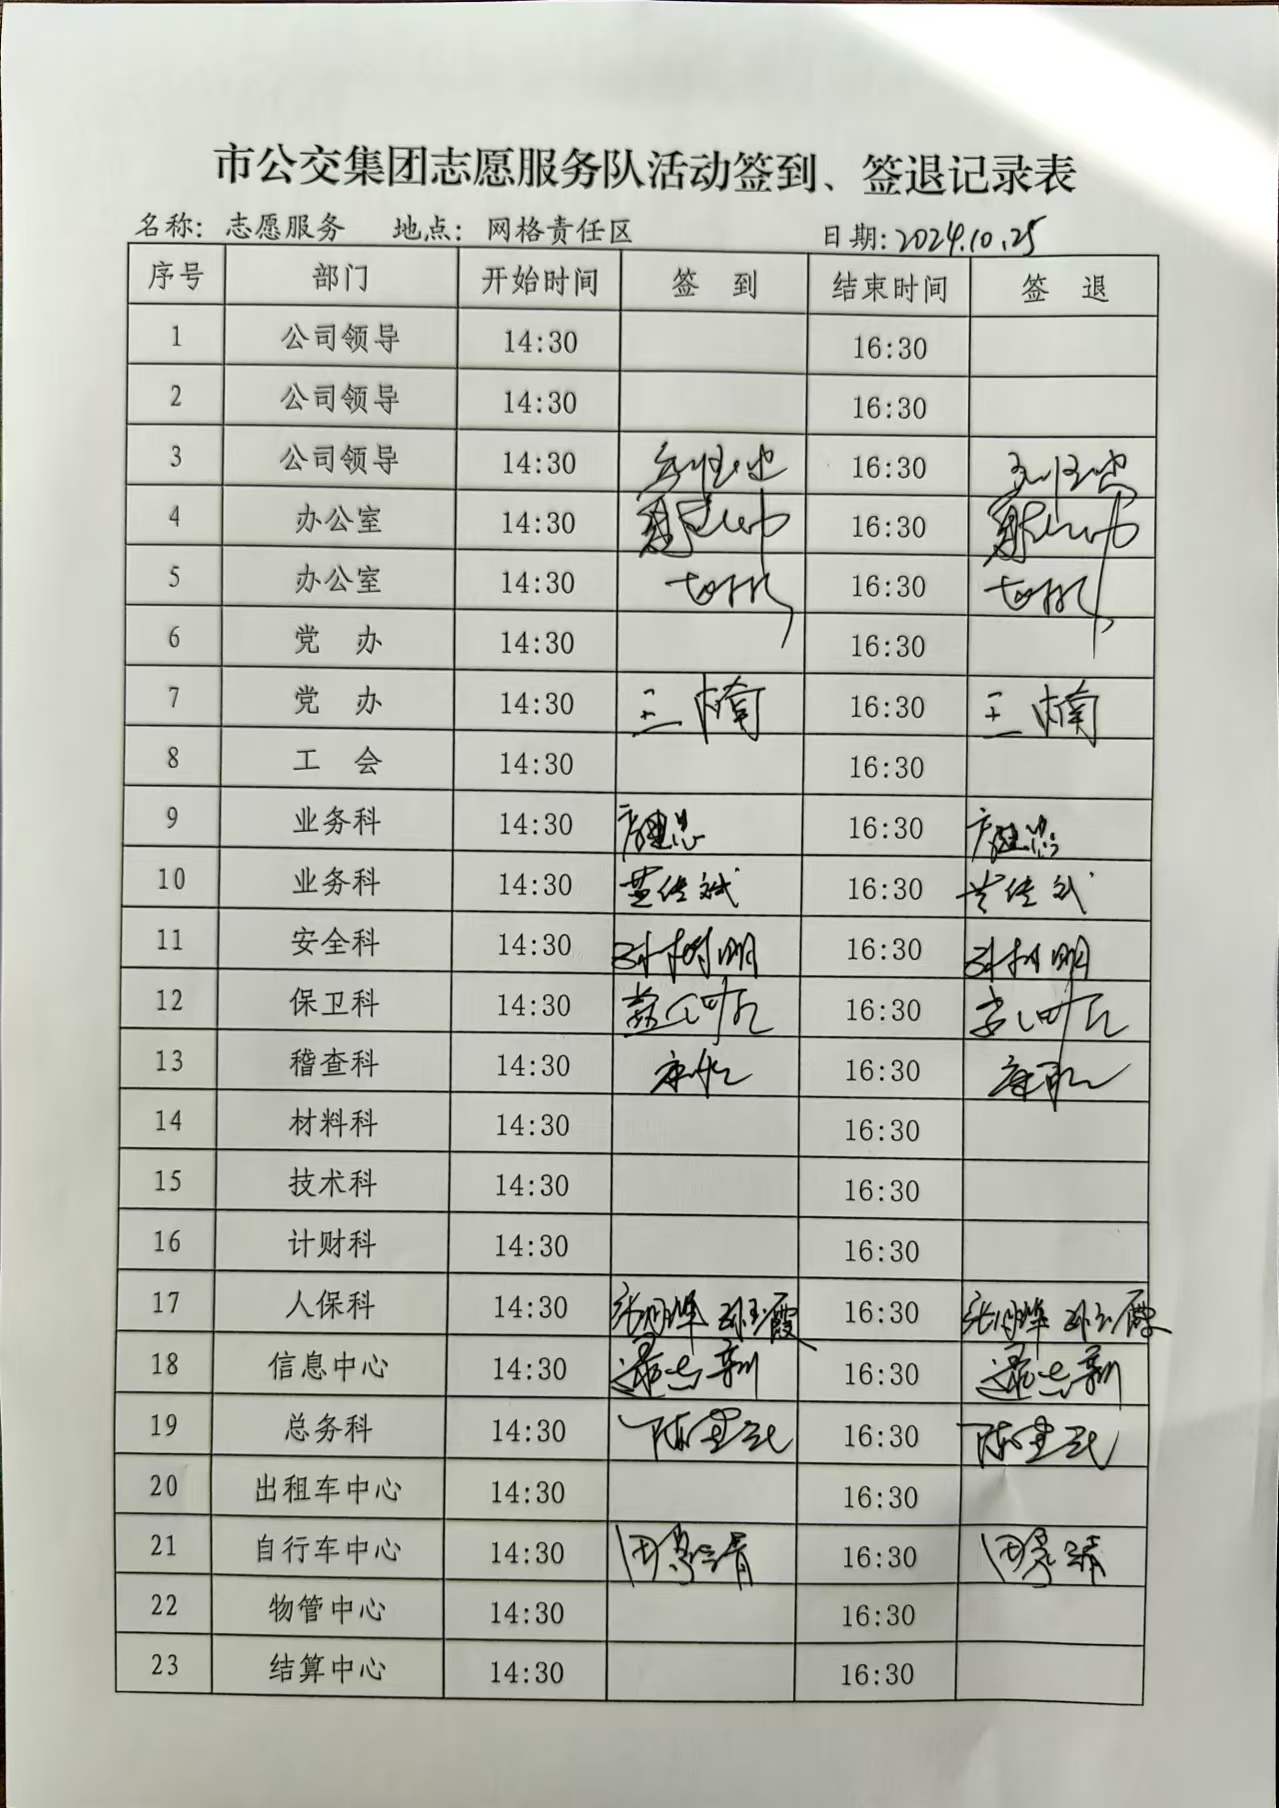 市公交集团志愿服务队活动签到、签退记录表
名称: 志愿服务 地点: 网格责任区 日期:2024.10.25
序号 部门 开始时间 签 到 结束时间 签 退
1 公司领导 14:30 16:30
2 公司领导 14:30 16:30
3 公司领导 14:30 16:30
4 办公室 14:30 16:30
5 办公室 14:30 16:30
6 党 办 14:30 16:30
7 党 办 14:30 王楠 16:30 王楠
8 工 会 14:30 16:30
9 业务科 14:30 16:30
10 业务科 14:30 16:30
11 安全科 14:30 孙树明 16:30 孙树明
12 保卫科 14:30 16:30
13 稽查科 14:30 16:30
14 材料科 14:30 16:30
15 技术科 14:30 16:30
16 计财科 14:30 16:30
17 人保科 14:30 孙玉霞 16:30 孙玉霞
18 信息中心 14:30 16:30
19 总务科 14:30 16:30
20 出租车中心 14:30 16:30
21 自行车中心 14:30 16:30
22 物管中心 14:30 16:30
23 结算中心 14:30 16:30